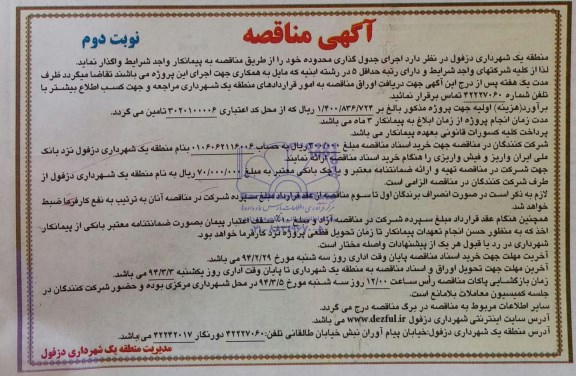 آگهی مناقصه
نوبت دوم
منطقه یک شهرداری دزفول در نظر دارد اجرای جدول گذاری محدوده خود را از طریق مناقصه به پیمانکار واجد شرایط واگذار نماید.
لذا از کلیه شرکتهای واجد شرایط و دارای رتبه حداقل ۵ در رشته ابنیه که مایل به همکاری جهت اجرای این پروژه می باشند تقاضا میگردد ظرف
مدت یک هفته پس از درج این آگهی جهت دریافت اوراق مناقصه به امور قراردادهای منطقه یک شهرداری مراجعه و جهت کسب اطلاع بیشتر با
تلفن شماره ۴۲۲۲۷۰۶۰ تماس برقرار نمائید.
برآورد(هزینه) اولیه جهت پروژه مذکور بالغ بر ۱/۴۰۰/۸۳۶/۷۲۴ ریال که از محل کد اعتباری ۳۰۲۰۱۰۰۰۰۶ تامین می گردد.
مدت زمان انجام پروژه از زمان ابلاغ به پیمانکار ۳ ماه می باشد.
پرداخت کلیه کسورات قانونی بعهده پیمانکار می باشد.
شرکت کنندگان در مناقصه جهت خرید اسناد مناقصه مبلغ ریال به حساب ۰۱۰۶۰۶۲۱۱۶۰۰۶ بنام منطقه یک شهرداری دزفول نزد بانک
ملی ایران واریز و فیش واریزی را هنگام خرید اسناد مناقصه ارائه نمایند
جهت شرکت در مناقصه تهیه و ارائه ضمانتنامه معتبر و یا چک بانکی معتبر به مبلغ ۷۰/۰۰۰/۰۰۰ ریال به نام منطقه یک شهرداری دزفول از
طرف شرکت کنندگان در مناقصه الزامی است.
لازم به ذکر است در صورت انصراف برندگان اول تا سوم مناقصه از عقد قرارداد مبلغ سپرده شرکت در مناقصه آنان به ترتیب به نفع کارفرما ضبط
خواهد شد.
همچنین هنگام عقد قرارداد مبلغ سپرده شرکت در مناقصه آزاد و مبلغ ۱۰٪ سقف اعتبار پیمان بصورت ضمانتنامه معتبر بانکی از پیمانکار،
اخذ که به منظور حسن انجام تعهدات پیمانکار تا زمان تحویل قطعی پروژه نزد کارفرما خواهد بود.
شهرداری در رد یا قبول هر یک از پیشنهادات واصله مختار است.
آخرین مهلت جهت خرید اسناد مناقصه پایان وقت اداری روز سه شنبه مورخ ۹۴/۲/۲۹ می باشد.
آخرین مهلت جهت تحویل اوراق و اسناد مناقصه به منطقه یک شهرداری تا پایان وقت اداری روز یکشنبه ۹۴/۳/۳ می باشد.
زمان بازگشایی پاکات مناقصه راس ساعت ۱۲/۰۰ روز سه شنبه مورخ ۹۴/۳/۵ در محل شهرداری مرکزی بوده و حضور شرکت کنندگان در
جلسه کمیسیون معاملات بلامانع است.
سایر اطلاعات مربوط به مناقصه در برگ مناقصه درج می گردد.
آدرس سایت اینترنتی شهرداری دزفول www.dezful.ir می باشد.
آدرس منطقه یک شهرداری دزفول:خیابان پیام آوران نبش خیابان طالقانی تلفن:۴۲۲۲۷۰۶۰ دورنگار ۴۲۲۴۲۰۱۷ می باشد.
مدیریت منطقه یک شهرداری دزفول